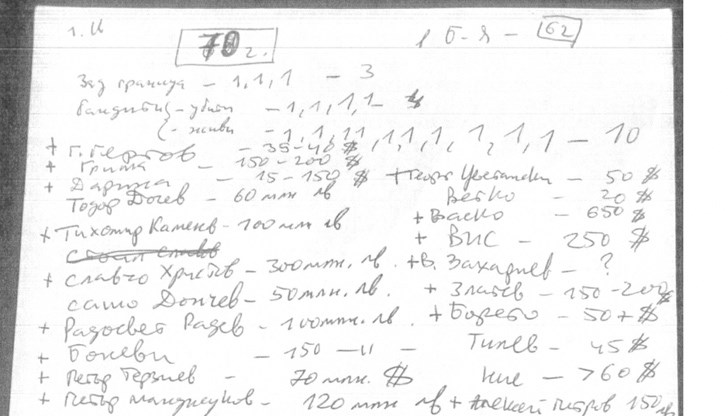 70 г.
Б-я - 62
Зад граница - 1,1,1 - 3
бандити - убити - 1,1,1,1 - 4
- живи - 1,1,11,1,1,1,1,1,1 - 10
+ Г. Гергов - 35-40 $
+ Гриша - 150-200 $
+ Дарина - 15-150 $
Тодор Дочев - 60 млн лв
+ Тихомир Каменов - 100 млн лв
+ Славчо Христов - 300 млн. лв.
Сашо Дончев - 50 млн. лв.
+ Радосвет Радев - 100 млн. лв
+ Боневи - 150 -"-
+ Петър Терзиев - 70 млн. $
+ Петър Манджуков - 120 млн лв
+ Цветански - 50 $
Ветко - 20 $
+ Васко - 650 $
+ ВИС - 250 $
+ В. Захариев - ?
+ Златев - 150-200 $
+ Борето - 50 + $
Тилев - 45 $
Ние - >60 $
+ Алексей Петров 150 лв